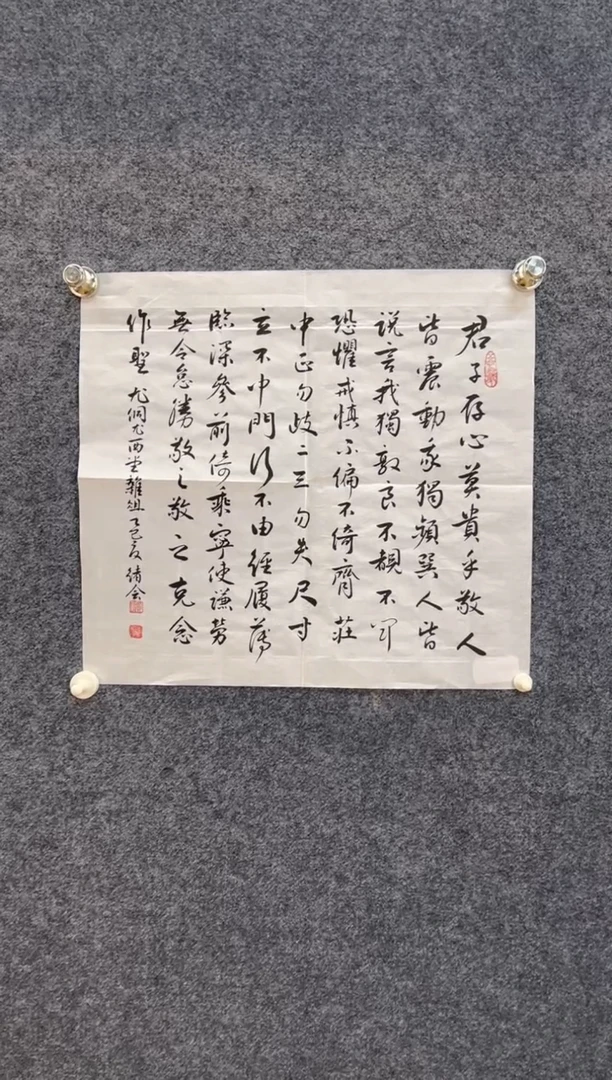 君子存心莫貴乎敬人
皆震動我獨頻巽人皆
説言我獨敦艮不覩不聞
恐懼戒慎不偏不倚齊莊
中正勿歧二三勿失尺寸
立不中門行不由徑履薄
臨深參前倚乘寧使謙勞
無令怠勝敬之敬之克念
作聖 尤侗尤西堂雜俎 乙巳夏 靖会